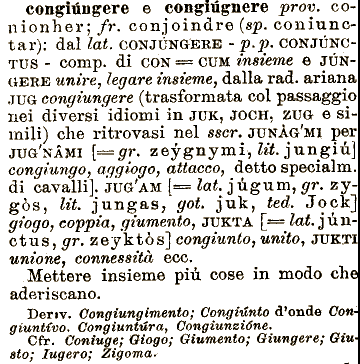 congiúngere e congiúgnere prov. co-
nionher; fr. conjoindre (sp. coniunc-
tar): dal lat. CONJÚNGERE - p. p. CONJÚNC-
TUS - comp. di CON = CUM insieme e JÚN-
GERE unire, legare insieme, dalla rad. ariana
JUG congiungere (trasformata col passaggio
nei diversi idiomi in JUK, JOCH, ZUG e si-
mili) che ritrovasi nel sscr. JUNÂG'MI per
JUG'NÂMI [= gr. zeýgnymi, lit. jungiú]
congiungo, aggiogo, attacco, detto specialm.
di cavalli]. JUG'AM [= lat. júgum, gr. zy-
gòs, lit. jungas, got. juk, ted. Jock]
giogo, coppia, giumento, JUKTA [= lat. jún-
ctus, gr. zeyktòs] congiunto, unito, JUKTI
unione, connessità ecc.
Mettere insieme piú cose in modo che
aderiscano.
Deriv. Congiungimento; Congiúnto d'onde Con-
giuntívo. Congiuntúra, Congiunzióne.
Cfr. Coniuge; Giogo; Giumento; Giungere; Giu-
sto; Iugero; Zigoma.